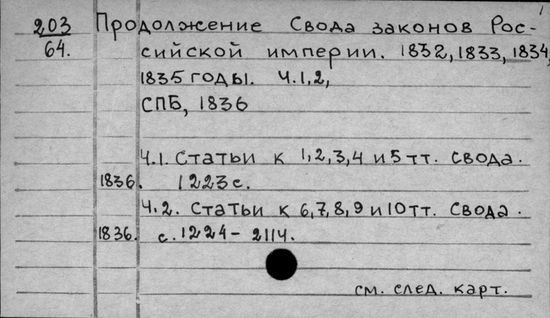 1
203 Продолжение Свода законов Рос-
64. сийской империи. 1832, 1833, 1834,
1835 годы. Ч.1,2,
СПБ, 1836
Ч.1. Статьи к 1,2,3,4 и 5 тт. свода.
1836. 1223 с.
Ч.2. Статьи к 6,7,8,9 и 10 тт. Свода.
1836. с. 1224 - 2114.
см. след. карт.